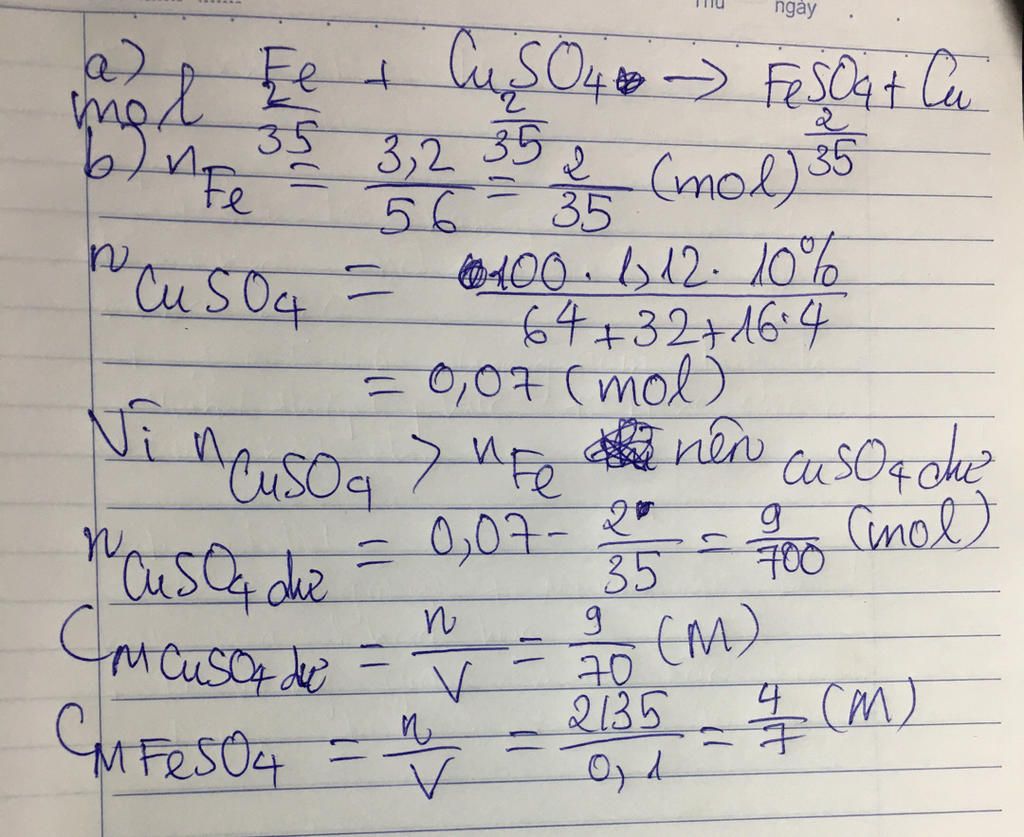 Thứ ngày
a) Fe + CuSO4 → FeSO4 + Cu
mol 2/35 2/35 2/35
b) nFe = 3,2/56 = 2/35 (mol)
nCuSO4 = 100 . 1,12 . 10% / 64+32+16.4
= 0,07 (mol)
Vì nCuSO4 > nFe nên CuSO4 dư
nCuSO4 dư = 0,07 - 2/35 = 9/700 (mol)
CM CuSO4 dư = n/V = 9/70 (M)
CM FeSO4 = n/V = 2/35 / 0,1 = 4/7 (M)